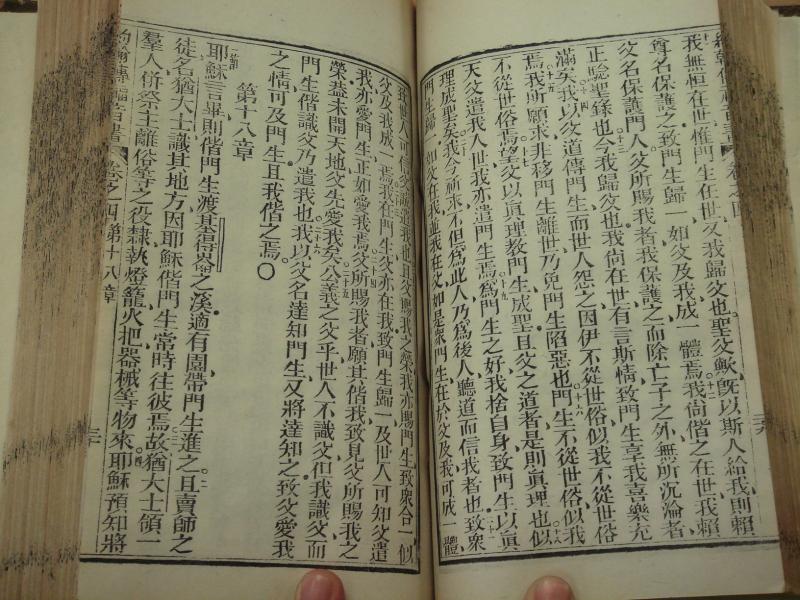 我無恒在世惟門生在世又我歸父也聖父歟既以斯人給我則賴
尊名保護之致門生歸一如父及我成一體焉十二我尚偕之在世我賴
父名保護門人父所賜我者我保護之而除亡子之外無所沉淪者
正驗聖錄也十三今我歸父也我尚在世有言斯情致門生享我喜樂充
滿矣十四我以父道傳門生而世人怨之因伊不從世俗似我不從世俗
焉十五我所願求非移門生離世乃免門生陷惡也十六門生不從世俗似我
不從世俗焉十七望父以眞理教門生成聖且父之道者是則眞理也十八似
天父遣我入世我亦遣門生焉十九爲門生之好我捨自身致門生以眞
理成聖矣二十我今祈求不但爲此人乃爲後人聽道而信我者也致衆
門生歸一如父在我並我在父如是衆門生在於父及我可成一體
致世人可信父誠遣我也且父賜我之榮我亦賜門生致衆合一似
父及我成一焉我在門生父亦在我致門生歸一及世人可知父遣
我亦愛門生正如愛我焉二十四父所賜我者願其偕我致見父所賜我之
榮蓋未開天地父先愛我矣二十五公義之父乎世人不識父但我識父而
門生偕識父乃遣我也二十六我以父名達知門生又將達知之致父愛我
之情可及門生且我偕之焉〇
第十八章
一節耶穌言畢則偕門生渡基得崙之溪適有園帶門生進之二且賣師之
徒名猶大士識其地方因耶穌偕門生常時往彼焉三故猶大士領一
羣人併祭主離俗等之役隸執燈籠火把器械等物來四耶穌預知將
約翰傳福音書 卷之四第十八章